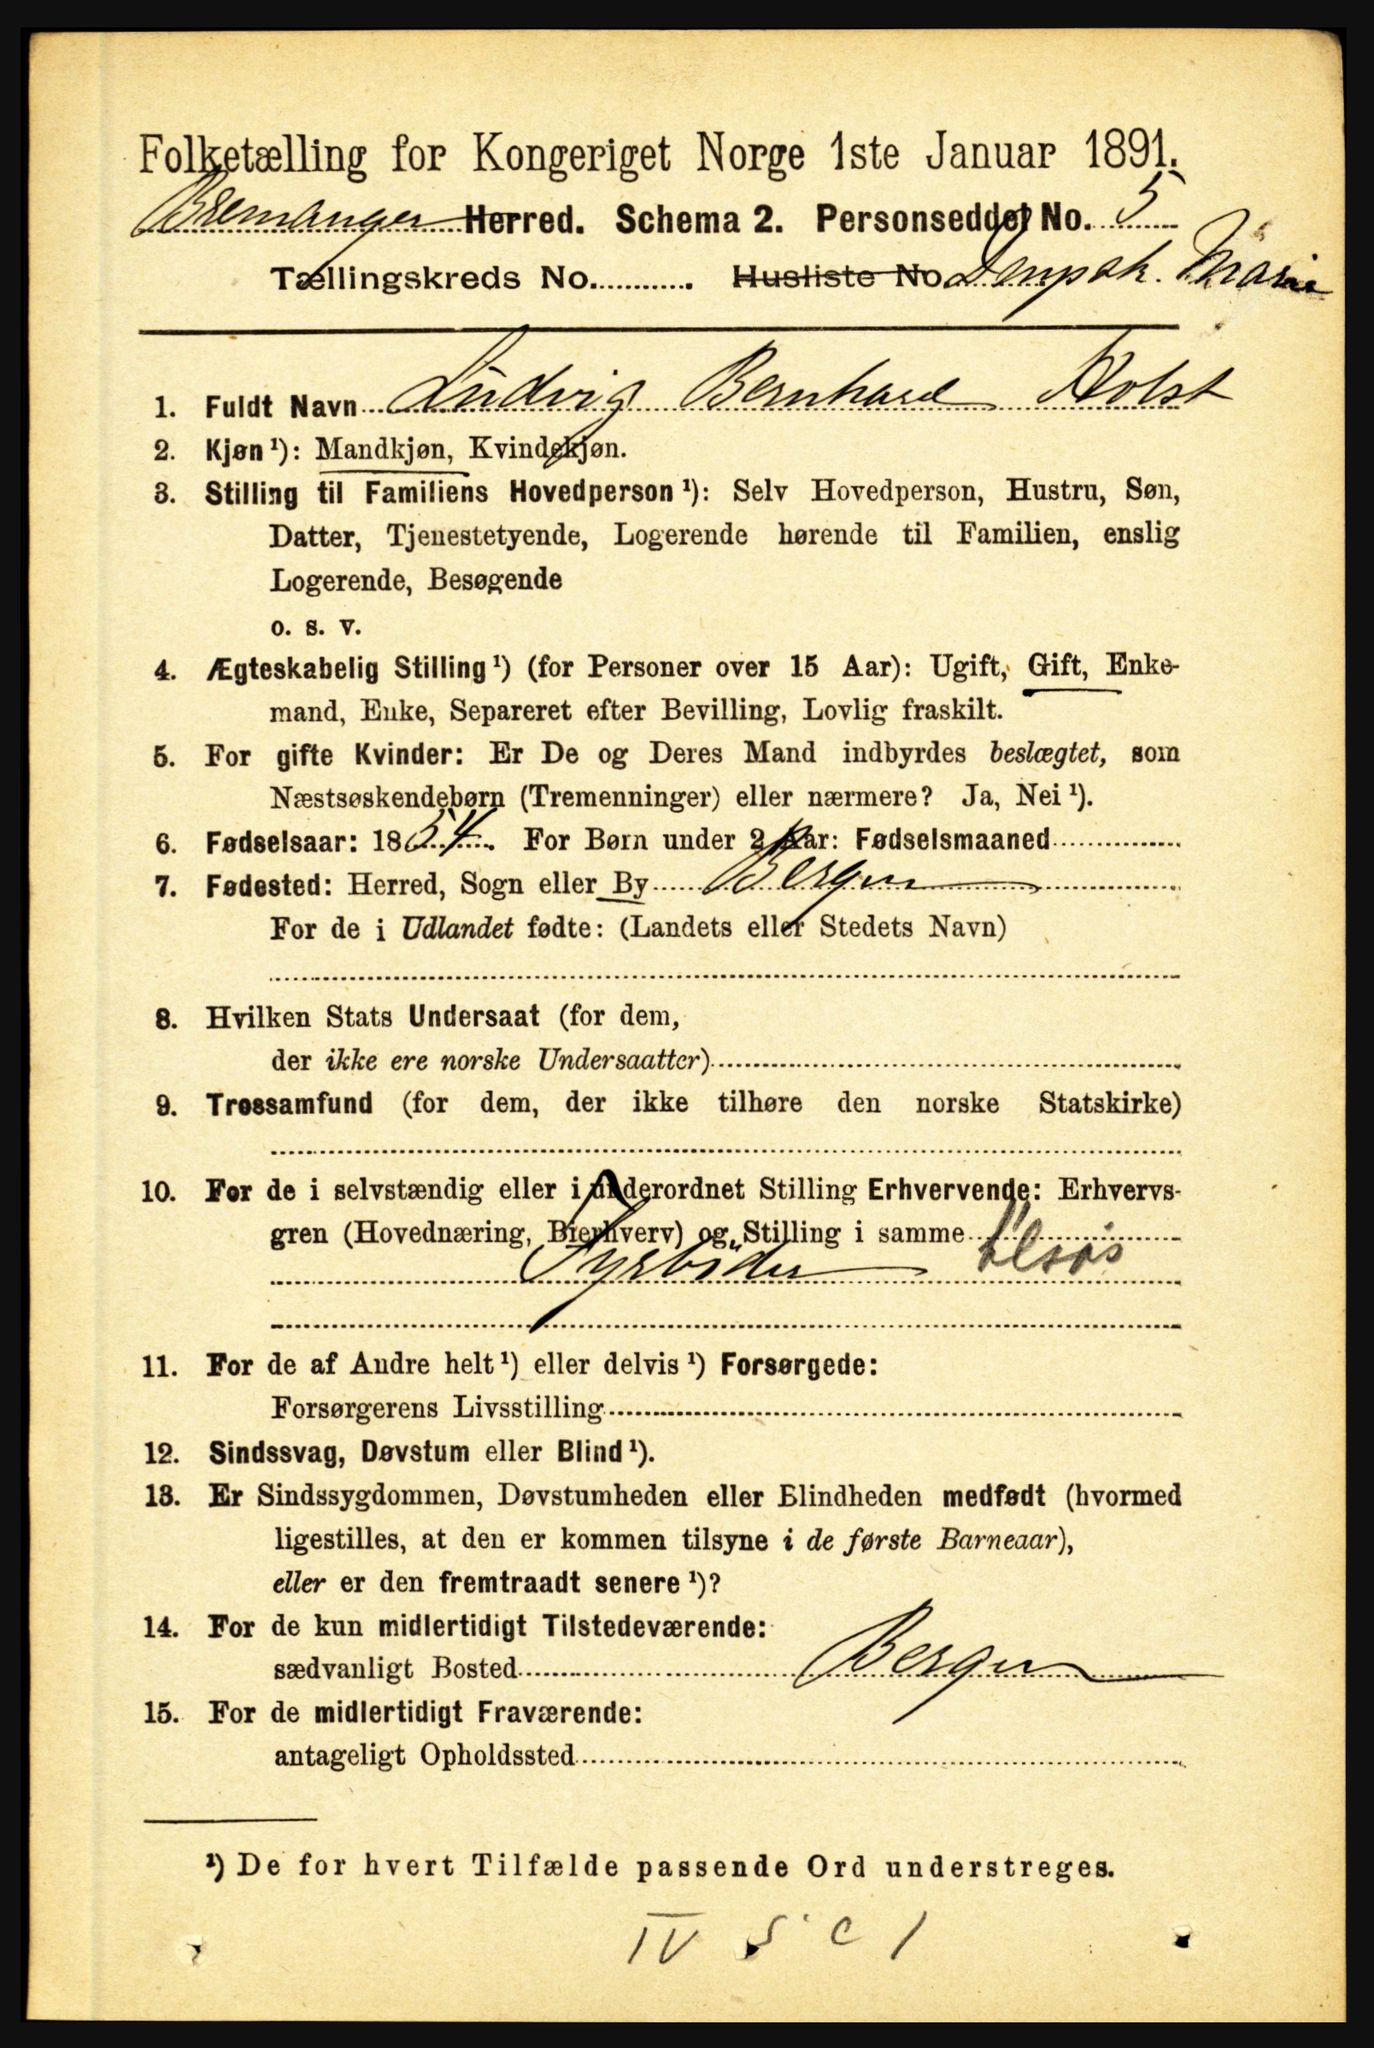 Folketælling for Kongeriget Norge 1ste Januar 1891.
Bremanger Herred. Schema 2. Personseddel No. 5
Tællingskreds No............ Husliste No Dampsk. Marie
1. Fuldt Navn Ludvig Bernhard Holst
2. Kjøn¹): Mandkjøn, Kvindekjøn.
3. Stilling til Familiens Hovedperson¹): Selv Hovedperson, Hustru, Søn,
Datter, Tjenestetyende, Logerende hørende til Familien, enslig
Logerende, Besøgende
o. s. v.
4. Ægteskabelig Stilling¹) (for Personer over 15 Aar): Ugift, Gift, Enke-
mand, Enke, Separeret efter Bevilling, Lovlig fraskilt.
5. For gifte Kvinder: Er De og Deres Mand indbyrdes beslægtet, som
Næstsøskendebørn (Tremenninger) eller nærmere? Ja, Nei¹).
6. Fødselsaar: 1854. For Børn under 2 Aar: Fødselsmaaned
7. Fødested: Herred, Sogn eller By Bergen
For de i Udlandet fødte: (Landets eller Stedets Navn)
8. Hvilken Stats Undersaat (for dem,
der ikke ere norske Undersaatter)
9. Trossamfund (for dem, der ikke tilhøre den norske Statskirke)
10. For de i selvstændig eller i underordnet Stilling Erhvervende: Erhvervs-
gren (Hovednæring, Bierhverv) og Stilling i samme
Fyrbøder tilsøs
11. For de af Andre helt¹) eller delvis¹) Forsørgede:
Forsørgerens Livsstilling
12. Sindssvag, Døvstum eller Blind¹).
13. Er Sindssygdommen, Døvstumheden eller Blindheden medfødt (hvormed
ligestilles, at den er kommen tilsyne i de første Barneaar),
eller er den fremtraadt senere¹)?
14. For de kun midlertidigt Tilstedeværende:
sædvanligt Bosted Bergen
15. For de midlertidigt Fraværende:
antageligt Opholdssted
¹) De for hvert Tilfælde passende Ord understreges.
IV 5 c 1